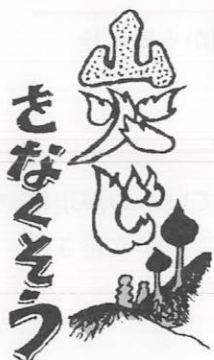 山火じ
をなくそう